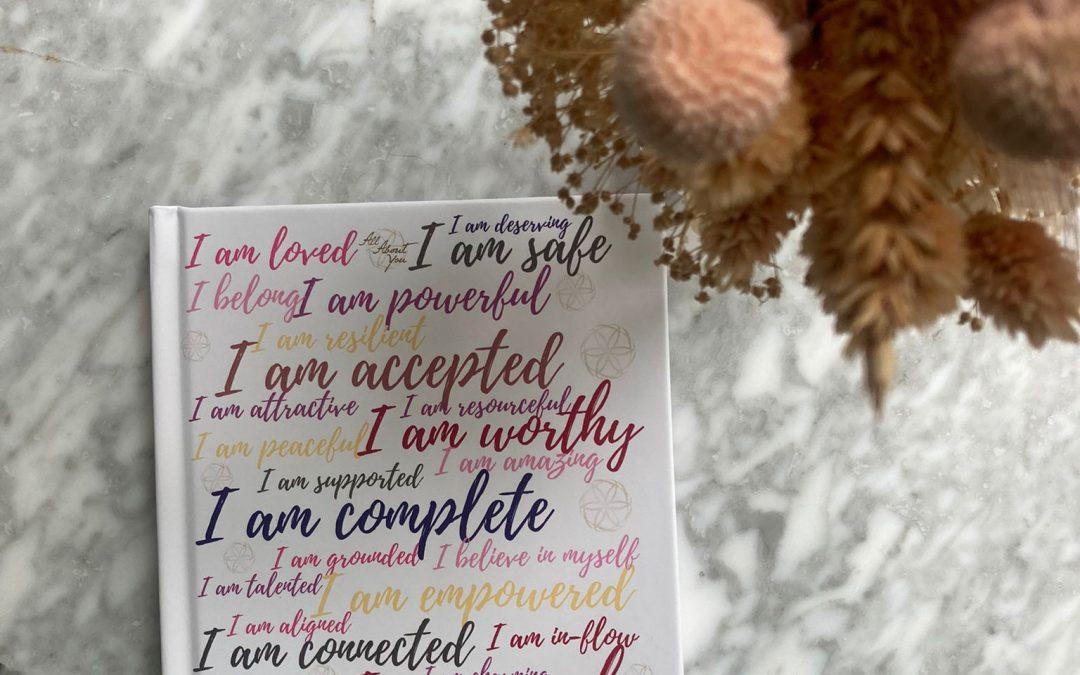 I am deserving
I am loved
All About You
I am safe
I belong
I am powerful
I am resilient
I am accepted
I am attractive
I am resourceful
I am peaceful
I am worthy
I am amazing
I am supported
I am complete
I am grounded
I believe in myself
I am talented
I am empowered
I am aligned
I am connected
I am in-flow
I am charming